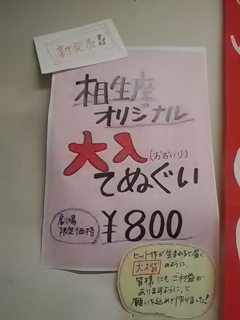 新発売
相生座
オリジナル
大入(おおいり)
てぬぐい
劇場
限定価格
¥800
ヒット作が生まれると届く
大入袋のように、
皆様にもご利益が
ありますように、と
願いを込めて作りました!